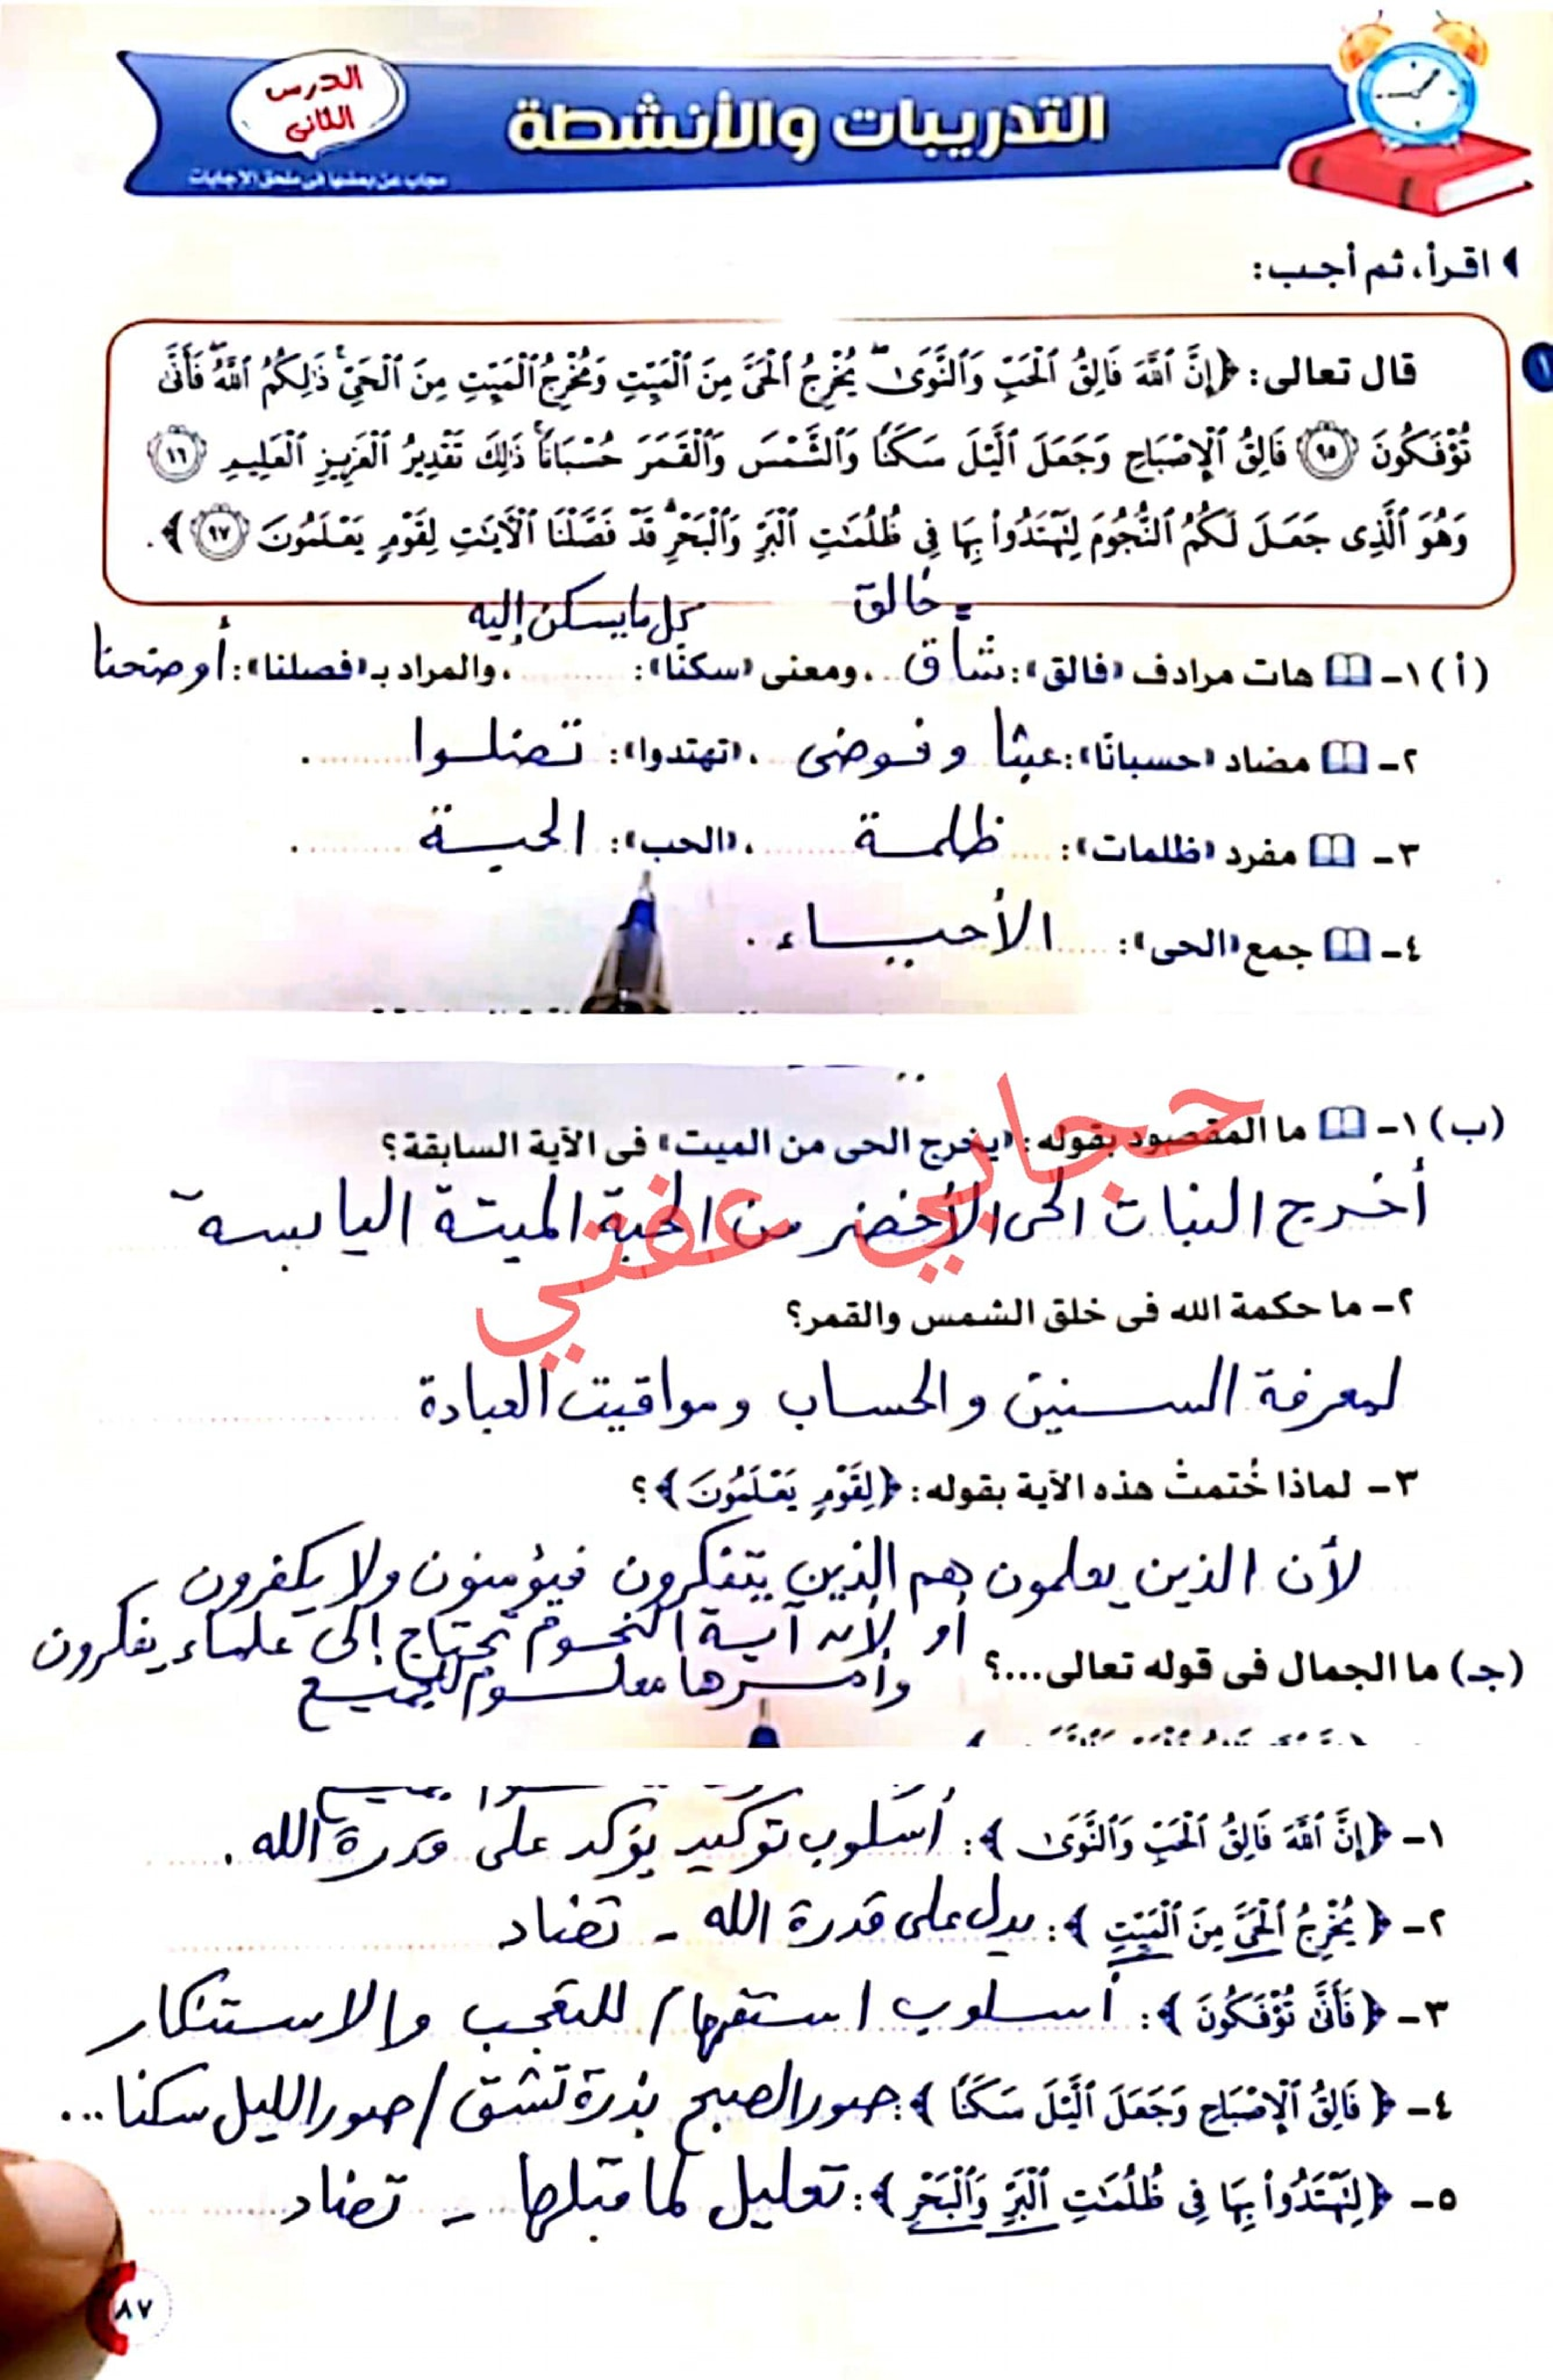 الدرس
الثانى
التدريبات والأنشطة
مجاب عن بعضها فى ملحق الإجابات
اقرأ، ثم أجب:
١
قال تعالى: ﴿إِنَّ ٱللَّهَ فَالِقُ ٱلْحَبِّ وَٱلنَّوَىٰ ۖ يُخْرِجُ ٱلْحَىَّ مِنَ ٱلْمَيِّتِ وَمُخْرِجُ ٱلْمَيِّتِ مِنَ ٱلْحَىِّ ۚ ذَٰلِكُمُ ٱللَّهُ ۖ فَأَنَّىٰ
تُؤْفَكُونَ ٩٥ فَالِقُ ٱلْإِصْبَاحِ وَجَعَلَ ٱلَّيْلَ سَكَنًا وَٱلشَّمْسَ وَٱلْقَمَرَ حُسْبَانًا ۚ ذَٰلِكَ تَقْدِيرُ ٱلْعَزِيزِ ٱلْعَلِيمِ ٩٦
وَهُوَ ٱلَّذِى جَعَلَ لَكُمُ ٱلنُّجُومَ لِتَهْتَدُوا۟ بِهَا فِى ظُلُمَٰتِ ٱلْبَرِّ وَٱلْبَحْرِ ۗ قَدْ فَصَّلْنَا ٱلْءَايَٰتِ لِقَوْمٍ يَعْلَمُونَ ٩٧﴾.
= خالق كل ما يسكن إليه
(أ) ١- هات مرادف «فالق»: شاق، ومعنى «سكنًا»: ......، والمراد بـ «فصلنا»: أوضحنا
٢- مضاد «حسبانًا»: عبثا وفوضى، «تهتدوا»: تضلوا.
٣- مفرد «ظلمات»: ظلمة، «الحب»: الحبة.
٤- جمع «الحى»: الأحياء.
(ب) ١- ما المقصود بقوله: «يخرج الحى من الميت» فى الآية السابقة؟
أخرج النبات الحى الأخضر من الحبة الميتة اليابسة
حجابي عفتي
٢- ما حكمة الله فى خلق الشمس والقمر؟
لمعرفة السنين والحساب ومواقيت العبادة
٣- لماذا خُتمتْ هذه الآية بقوله: ﴿لِقَوْمٍ يَعْلَمُونَ﴾؟
لأن الذين يعلمون هم الذين يتفكرون فيؤمنون ولا يكفرون
أو لأن آية النجوم تحتاج إلى علماء يفكرون
وأمرها معلوم للجميع
(جـ) ما الجمال فى قوله تعالى...؟
١- ﴿إِنَّ ٱللَّهَ فَالِقُ ٱلْحَبِّ وَٱلنَّوَىٰ﴾: أسلوب توكيد يؤكد على قدرة الله.
٢- ﴿يُخْرِجُ ٱلْحَىَّ مِنَ ٱلْمَيِّتِ﴾: يدل على قدرة الله - تضاد
٣- ﴿فَأَنَّىٰ تُؤْفَكُونَ﴾: أسلوب استفهام للتعجب والاستنكار
٤- ﴿فَالِقُ ٱلْإِصْبَاحِ وَجَعَلَ ٱلَّيْلَ سَكَنًا﴾: صور الصبح بذرة تشق / صور الليل سكنا...
٥- ﴿لِتَهْتَدُوا۟ بِهَا فِى ظُلُمَٰتِ ٱلْبَرِّ وَٱلْبَحْرِ﴾: تعليل لما قبلها - تضاد
٨٧